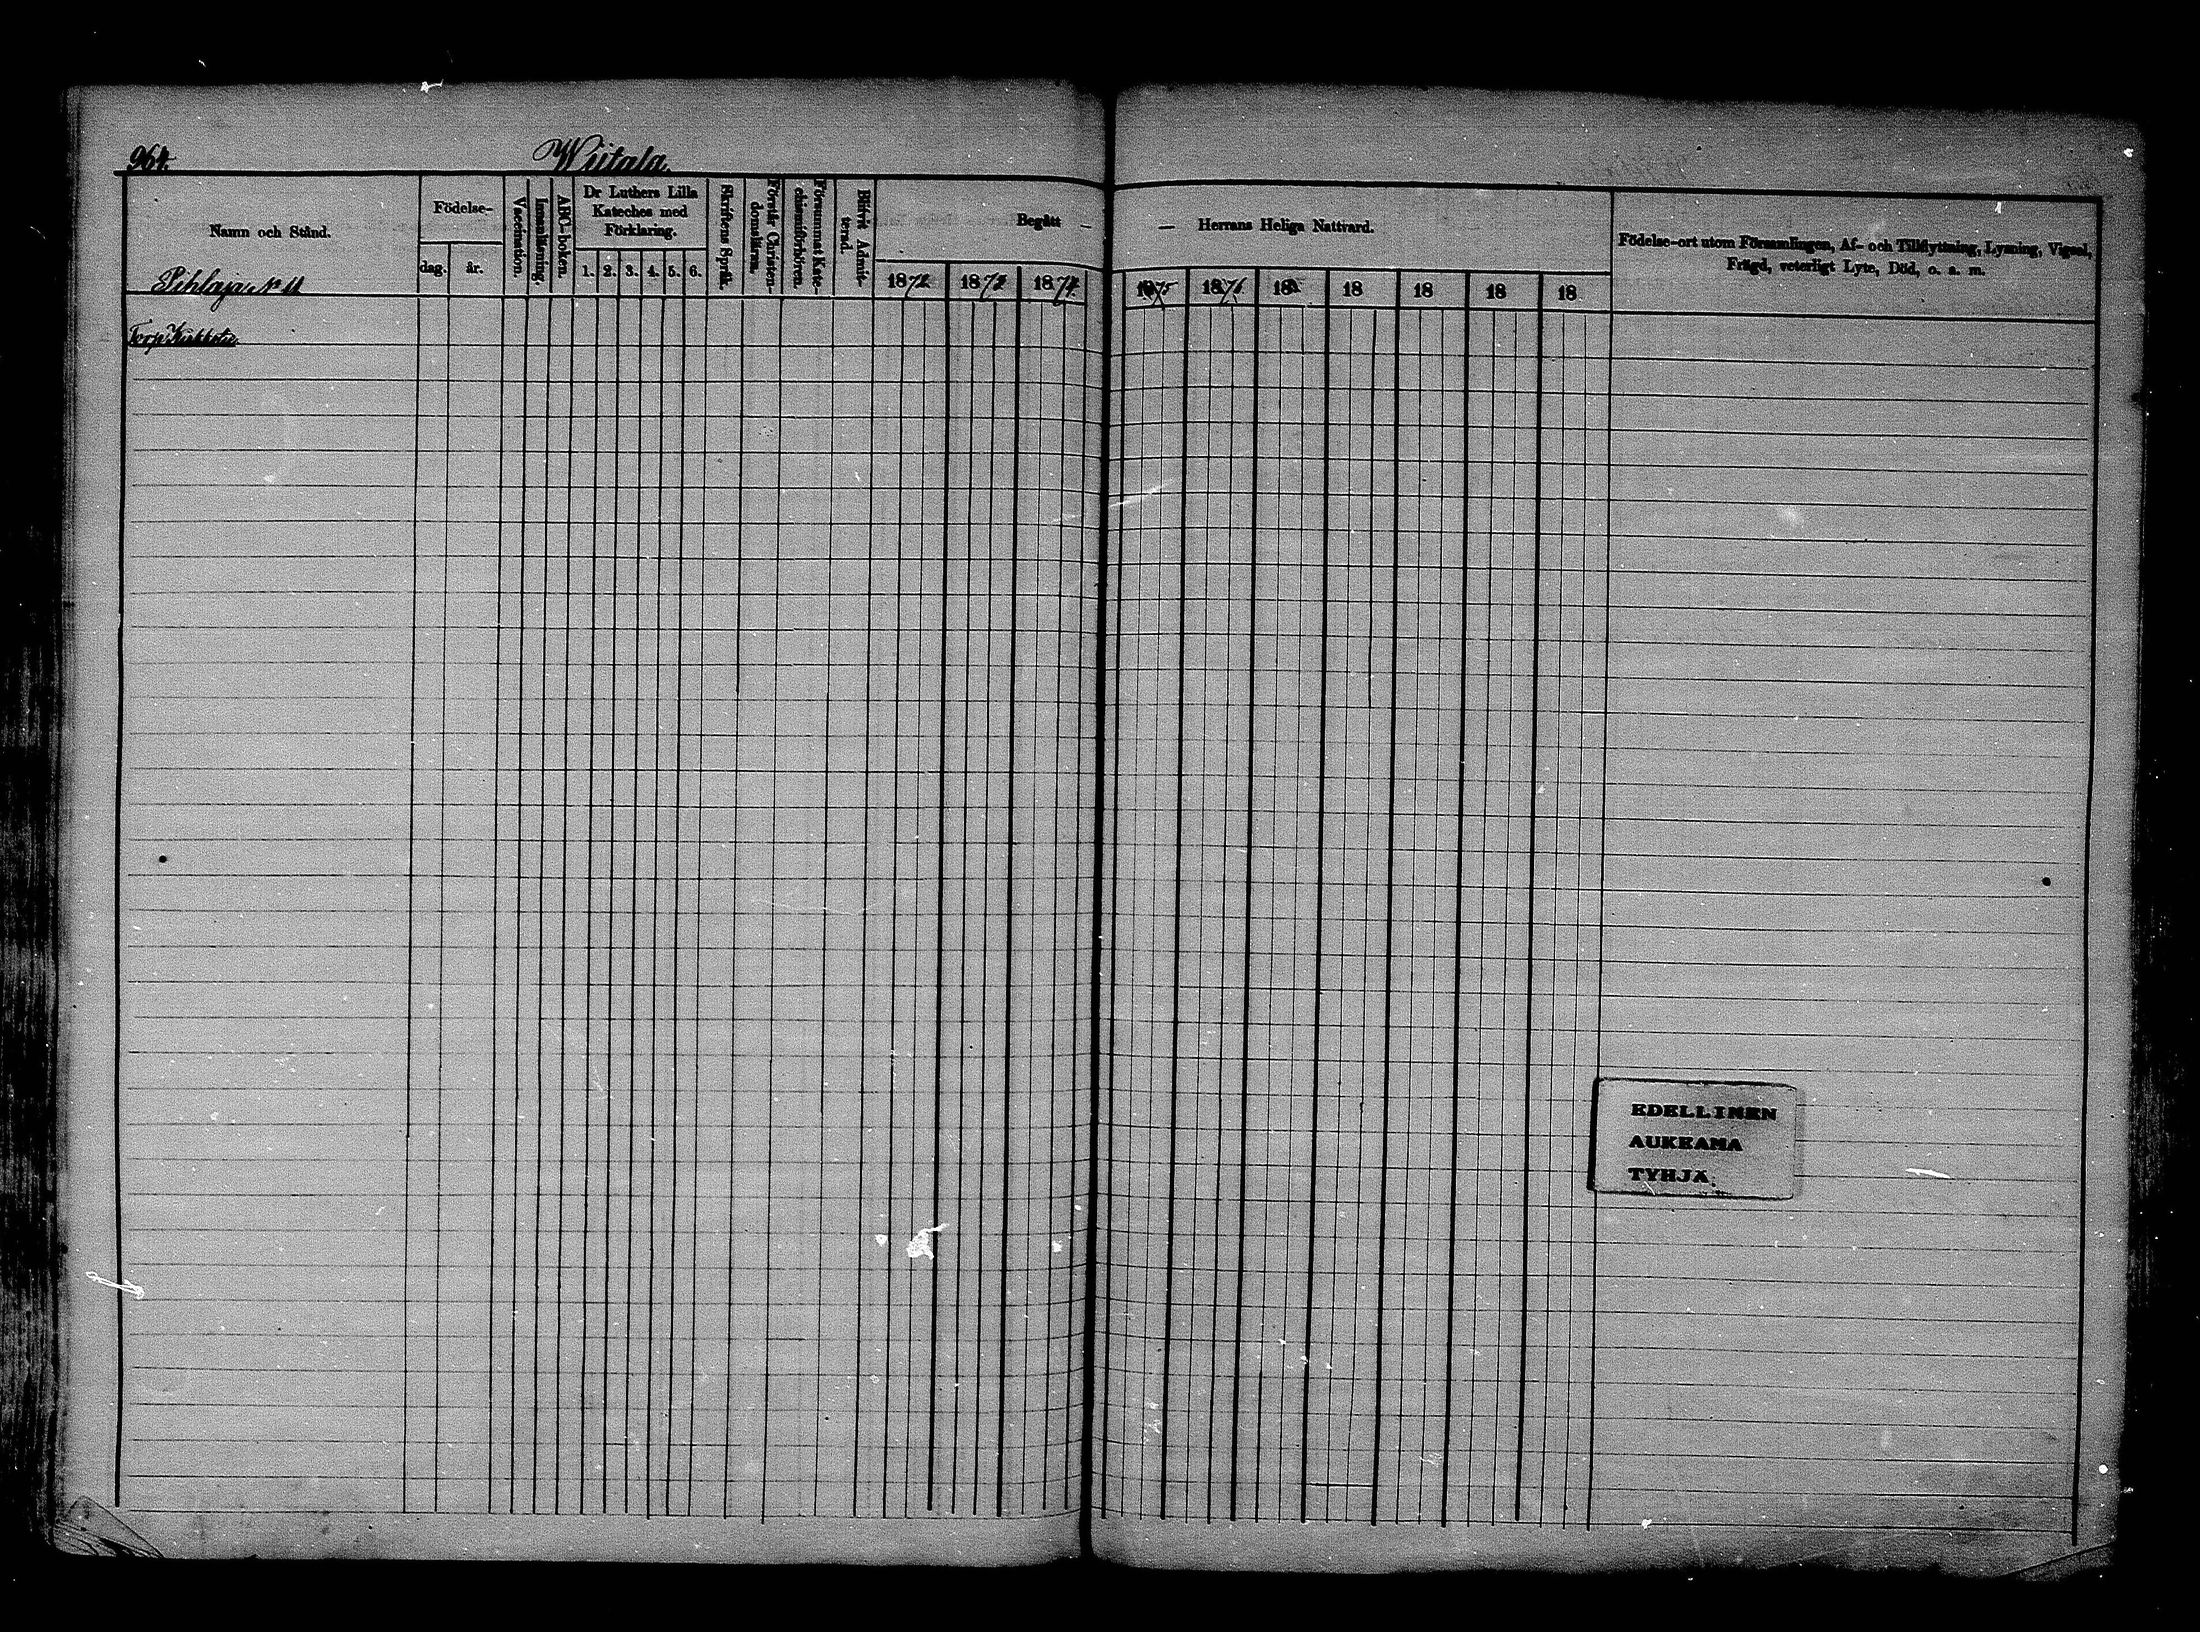 964.
Wiitala.
Namn och Stånd.
Födelse-
dag.
år.
Vaccination.
Innanläsning.
ABC-boken.
Dr Luthers Lilla
Kateches med
Förklaring.
1. 2. 3. 4. 5. 6.
Skriftens Språk.
Förstår Christen-
domsläran.
Försummat Kate-
chismiförhören.
Blifvit Admit-
terad.
Begått —
1872 1873 1874.
— Herrans Heliga Nattvard.
1875 1876 18 18 18 18 18
Födelse-ort utom Församlingen, Af- och Tillflyttning, Lysning, Vigsel,
Frägd, veterligt Lyte, Död, o. s. m.
Pihlaja N:o 11
Torp
EDELLINEN
AUKEAMA
TYHJÄ.